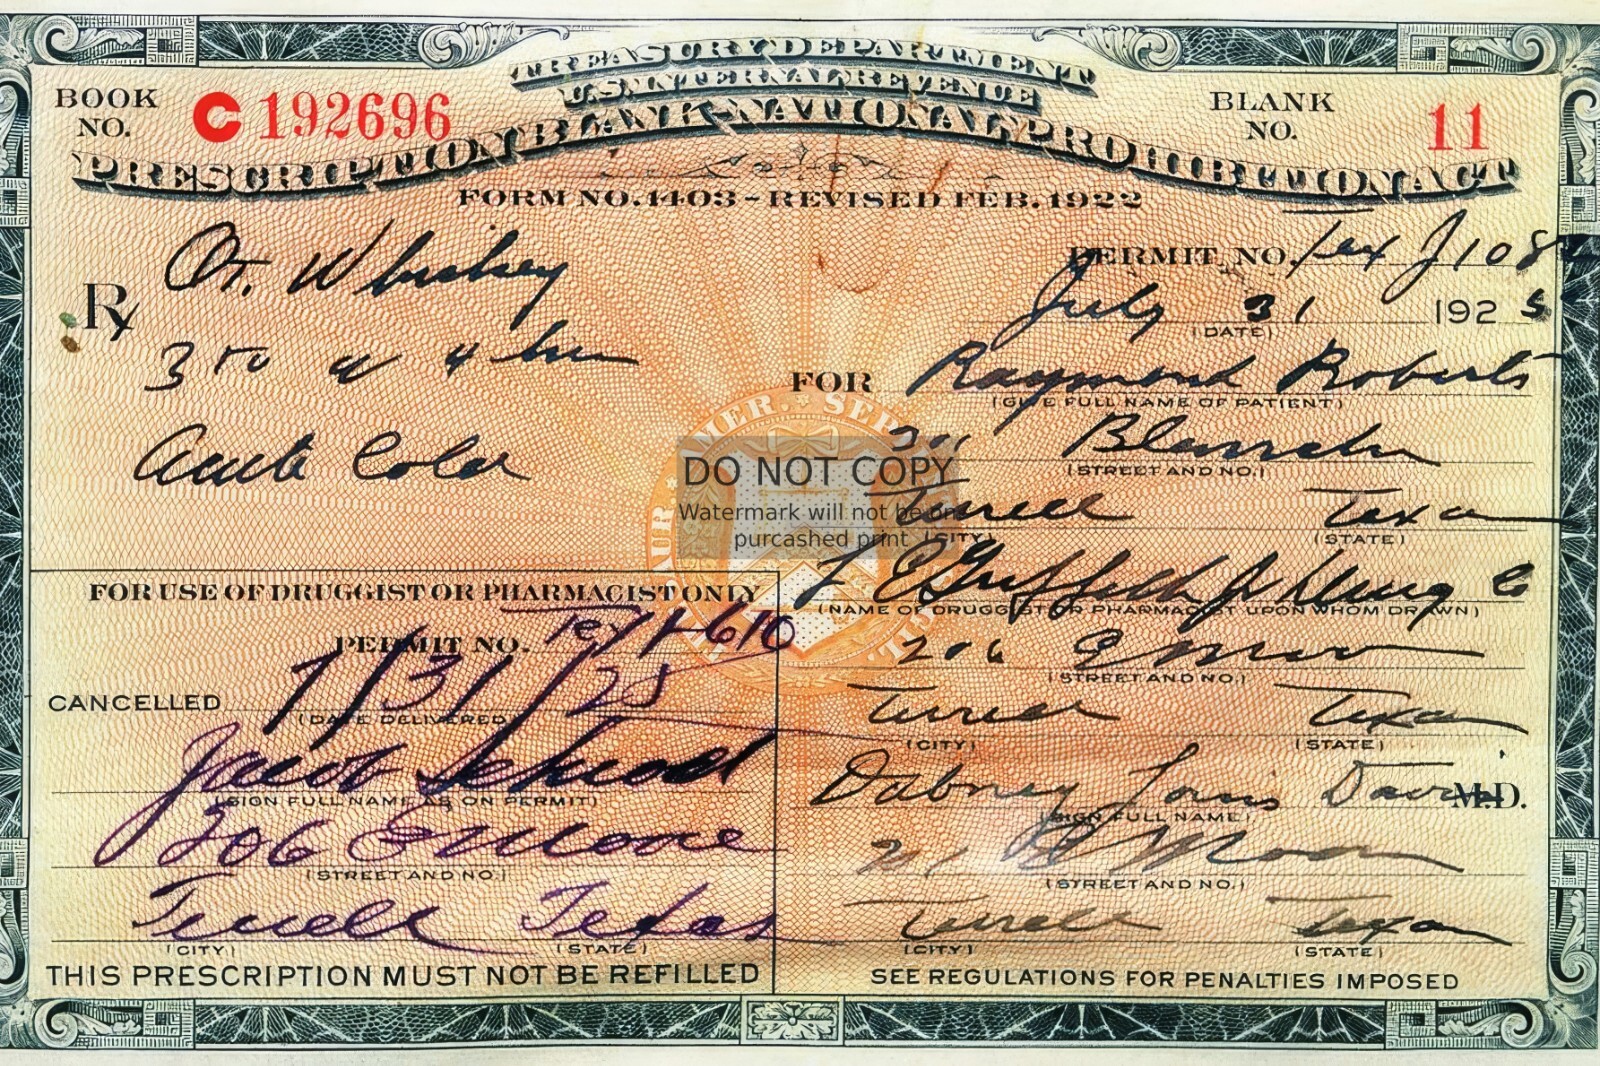 TREASURY DEPARTMENT
U.S. INTERNAL REVENUE
PRESCRIPTION BLANK-NATIONAL PROHIBITION ACT
FORM NO. 1403 - REVISED FEB. 1922
BOOK NO. C192696
BLANK NO. 11
Rx
Whiskey
PERMIT NO. Tex J 108
July 31 1925
(DATE)
3
FOR Raymond Roberts
(GIVE FULL NAME OF PATIENT)
Blanche
(STREET AND NO.)
Terrell Texas
(CITY) (STATE)
AMER. SEP
DO NOT COPY
Watermark will not be on
purcashed print
Griffith Jr Drug Co
(NAME OF DRUGGIST OR PHARMACIST UPON WHOM DRAWN)
206 E Moore
(STREET AND NO.)
Terrell Texas
(CITY) (STATE)
Dabney Louis Davis M.D.
(SIGN FULL NAME)
E Moore
(STREET AND NO.)
Terrell Texas
(CITY) (STATE)
SEE REGULATIONS FOR PENALTIES IMPOSED
FOR USE OF DRUGGIST OR PHARMACIST ONLY
PERMIT NO. Tex 610
CANCELLED 7/31/25
(DATE DELIVERED)
Jacob
(SIGN FULL NAME AS ON PERMIT)
206 E Moore
(STREET AND NO.)
Terrell Texas
(CITY) (STATE)
THIS PRESCRIPTION MUST NOT BE REFILLED